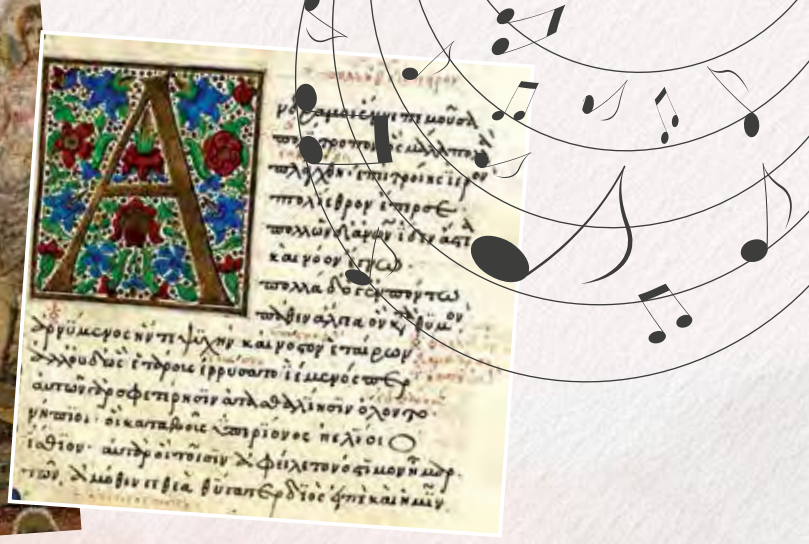 Α
νδρα μοι ἔννεπε μοῦσα
πολύτροπον ὃς μάλα πολλὰ
πλάγχθη· ἐπεὶ τροίης ἱερὸν
πτολίεθρον ἔπερσε
πολλῶν δ' ἀνθρώπων ἴδεν ἄστεα
καὶ νόον ἔγνω
πολλὰ δ' ὅ γ' ἐν πόντω
πάθεν ἄλγεα ὃν κατὰ θυμὸν
ἀρνύμενος ἥν τε ψυχὴν καὶ νόστον ἑταίρων
ἀλλ' οὐδ' ὣς ἑτάρους ἐρρύσατο ἱέμενός περ
αὐτῶν γὰρ σφετέρησιν ἀτασθαλίησιν ὄλοντο·
νήπιοι· οἳ κατὰ βοῦς ὑπερίονος ἠελίοιο
ἤσθιον· αὐτὰρ ὁ τοῖσιν ἀφείλετο νόστιμον ἦμαρ·
τῶν ἁμόθεν γε θεὰ θύγατερ διὸς εἰπὲ καὶ ἡμῖν.